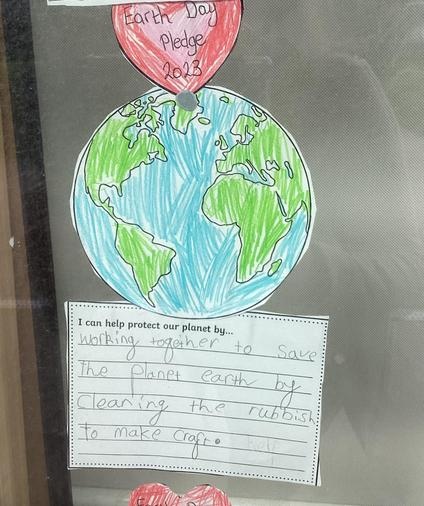 Earth Day
Pledge
2023
I can help protect our planet by...
Working together to save
The planet earth by
Cleaning the rubbish
to make craft.